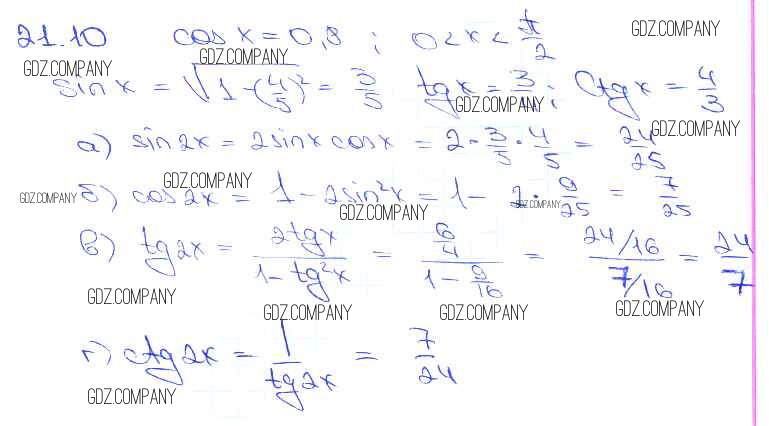 21.10 cos x = 0,8 ; 0 < x < π/2 GDZ.COMPANY
GDZ.COMPANY GDZ.COMPANY
sin x = √1-(4/5)² = 3/5 tg x = 3/4; ctg x = 4/3
GDZ.COMPANY
а) sin 2x = 2 sin x cos x = 2 · 3/5 · 4/5 = 24/25 GDZ.COMPANY
GDZ.COMPANY
GDZ.COMPANY б) cos 2x = 1 - 2 sin²x = 1 - 2 · 9/25 = 7/25 GDZ.COMPANY
GDZ.COMPANY
в) tg 2x = 2tg x / 1 - tg²x = 6/4 / 1 - 9/16 = 24/16 / 7/16 = 24/7
GDZ.COMPANY GDZ.COMPANY GDZ.COMPANY GDZ.COMPANY
г) ctg 2x = 1 / tg 2x = 7/24
GDZ.COMPANY